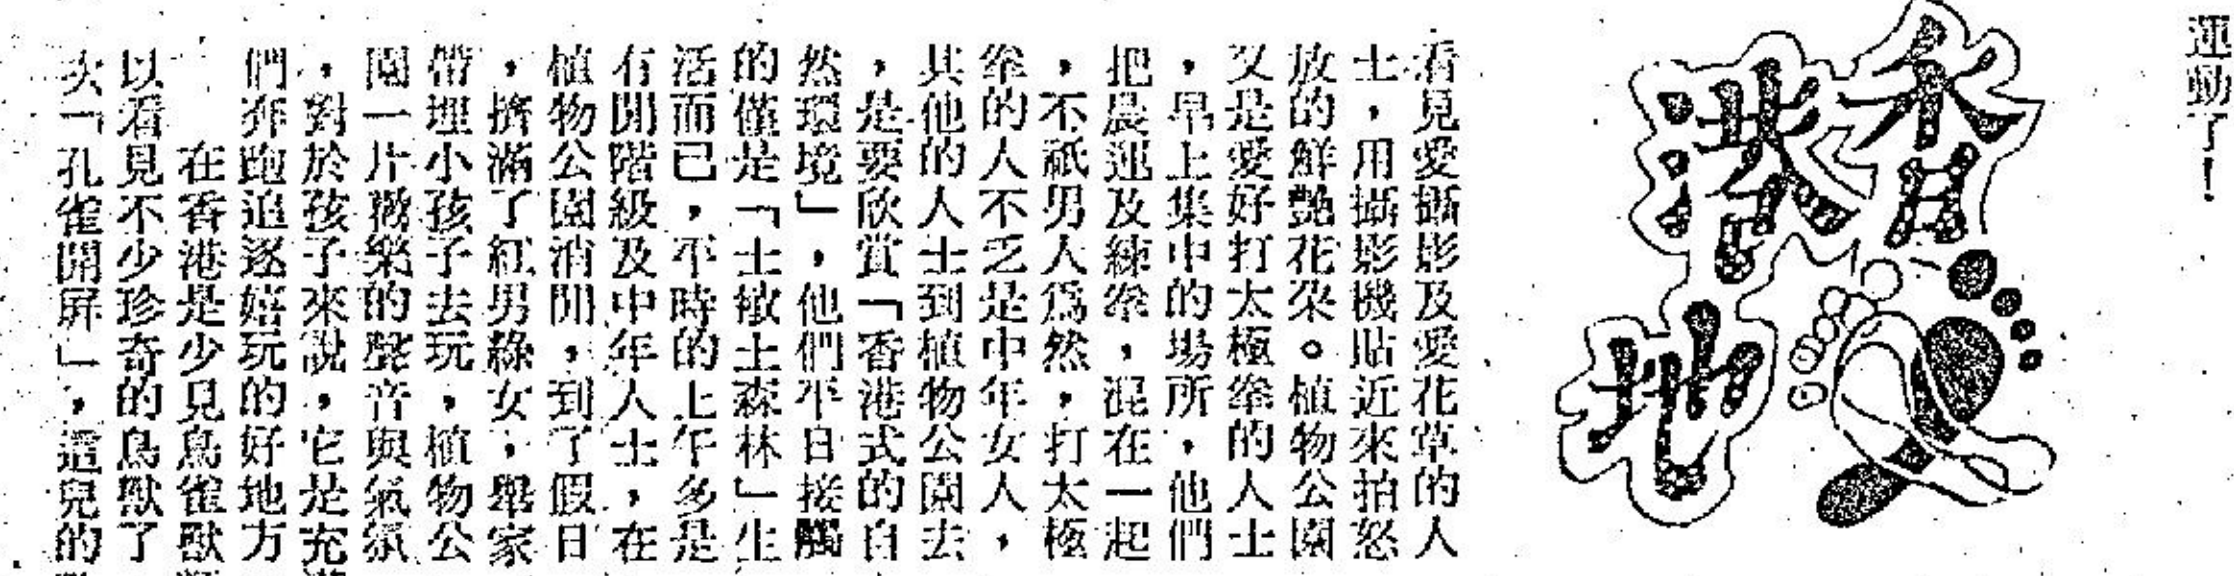 運動了！
香港
地
看見愛攝影及愛花草的人
士，用攝影機貼近來拍怒
放的鮮艷花朶。植物公園
又是愛好打太極拳的人士
，早上集中的場所，他們
把晨運及練拳，混在一起
，不祇男人爲然，打太極
拳的人不乏是中年女人，
其他的人士到植物公園去
，是要欣賞「香港式的自
然環境」，他們平日接觸
的僅是「士敏土森林」生
活而已，平時的上午多是
有閒階級及中年人士，在
植物公園消閒，到了假日
，擠滿了紅男綠女，舉家
帶埋小孩子去玩，植物公
園一片歡樂的聲音與氣氛
，對於孩子來說，它是充
們奔跑追逐嬉玩的好地方
在香港是少見鳥雀獸
以看見不少珍奇的鳥獸了
次「孔雀開屏」，這兒的